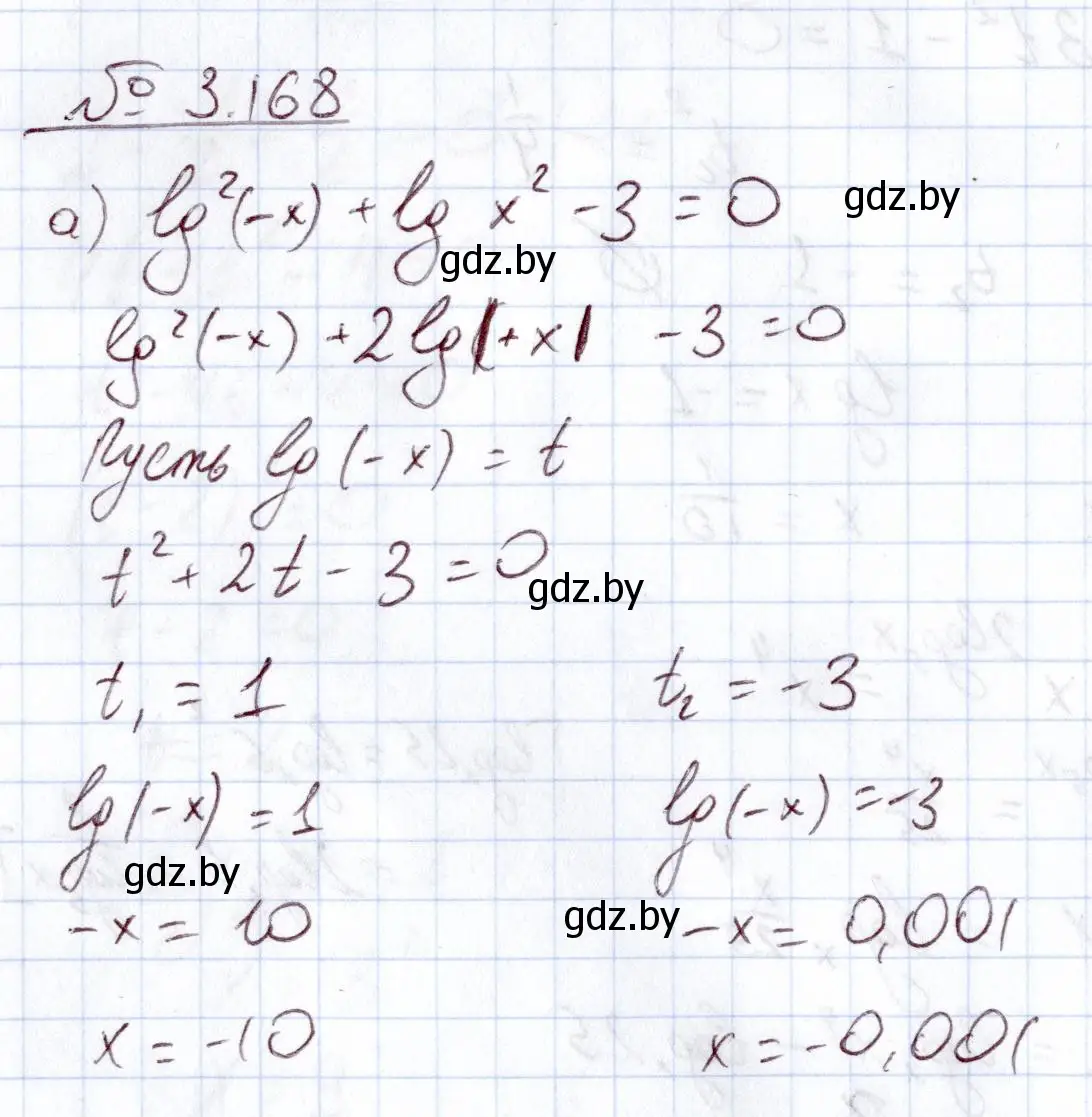 № 3.168
а) lg²(-x) + lg x² - 3 = 0 gdz.by
gdz.by
lg²(-x) + 2 lg |+x| - 3 = 0
Пусть lg (-x) = t
t² + 2t - 3 = 0
gdz.by
t₁ = 1 t₂ = -3
lg(-x) = 1 lg(-x) = -3
gdz.by
gdz.by
-x = 10 -x = 0,001
x = -10 x = -0,001